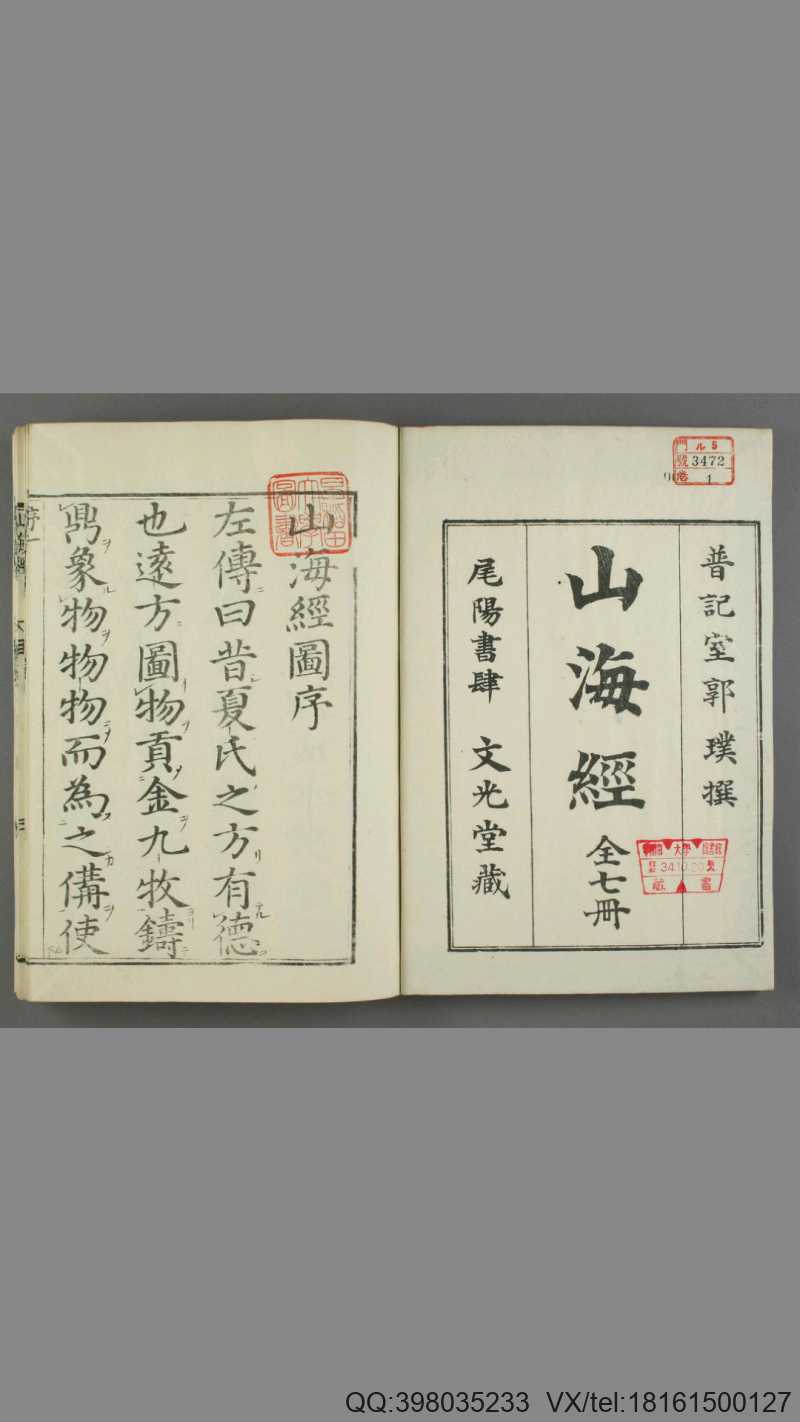 普記室郭璞撰
山海經 全七冊
尾陽書肆 文光堂藏
ル5
3472
1
山海經圖序
左傳曰昔夏氏之方有德
也遠方圖物貢金九牧鑄
鼎象物物物而為之備使
序一
QQ:398035233 VX/tel:18161500127